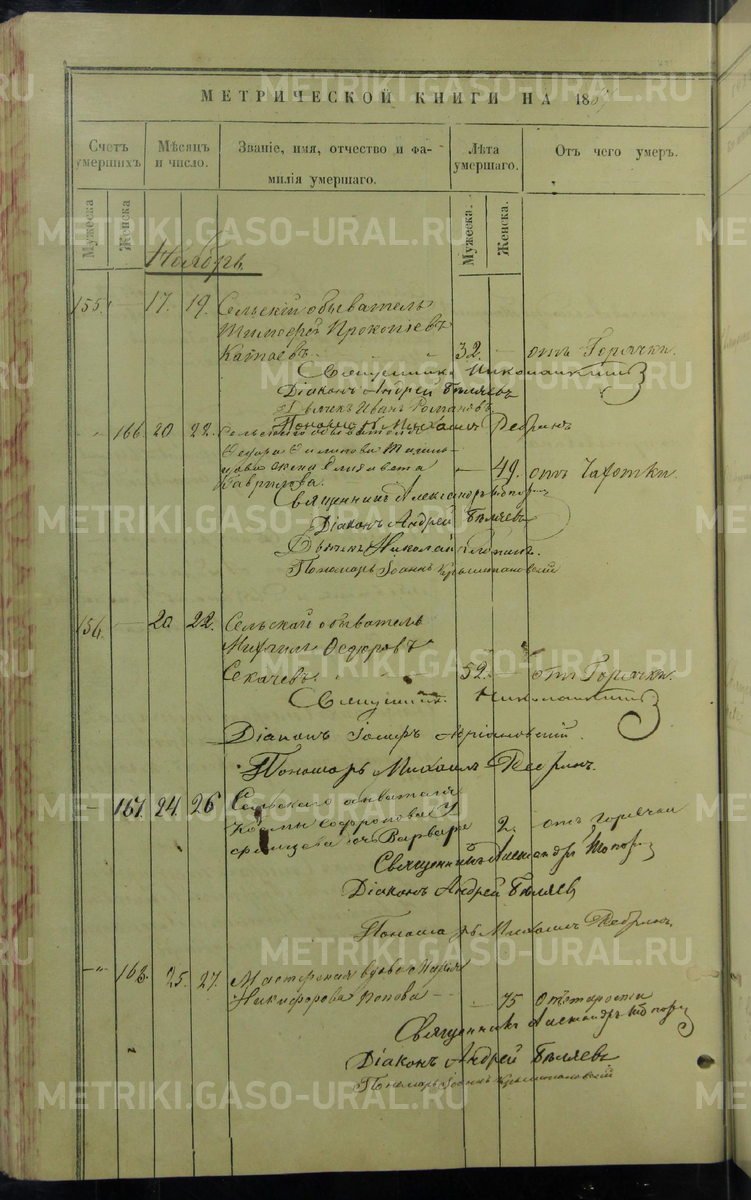 МЕТРИЧЕСКОЙ КНИГИ НА 186
Счетъ умершихъ
Мѣсяцъ и число.
Званіе, имя, отчество и фамилія умершаго.
Лѣта умершаго.
Отъ чего умеръ.
Мужеска
Женска
Мужеска.
Женска.
Ноябрь
155. 17. 19. Сельскій обыватель
Тимофей Прокопіевъ
Катаевъ 32. отъ Горячки.
Священникъ
Діаконъ Андрей Бѣляевъ
Дьячекъ Иванъ Романовъ
Пономарь Михаилъ Ребринъ
" 166. 20 22. Сельскаго обывателя
Федора Филипова
жена Елизавета
Гаврилова. 49. отъ Чахотки.
Священникъ Александръ
Діаконъ Андрей Бѣляевъ
Дьячекъ Николай
Пономарь Іоаннъ
156. 20 22. Сельскій обыватель
Михаилъ Федоровъ
Секачевъ 52. отъ Горячки.
Священникъ
Діаконъ Іосифъ
Пономарь Михаилъ Ребринъ.
167. 24. 26 Сельскаго обывателя
Козмы Софронова
дочь Варвара 2 отъ горячки
Священникъ Александръ
Діаконъ Андрей Бѣляевъ
Пономарь Михаилъ Ребринъ.
" 168. 25. 27. Мастерская вдова Марія
Никифорова Попова 75 отъ старости
Священникъ Александръ
Діаконъ Андрей Бѣляевъ
Пономарь Іоаннъ
METRIKI.GASO-URAL.RU